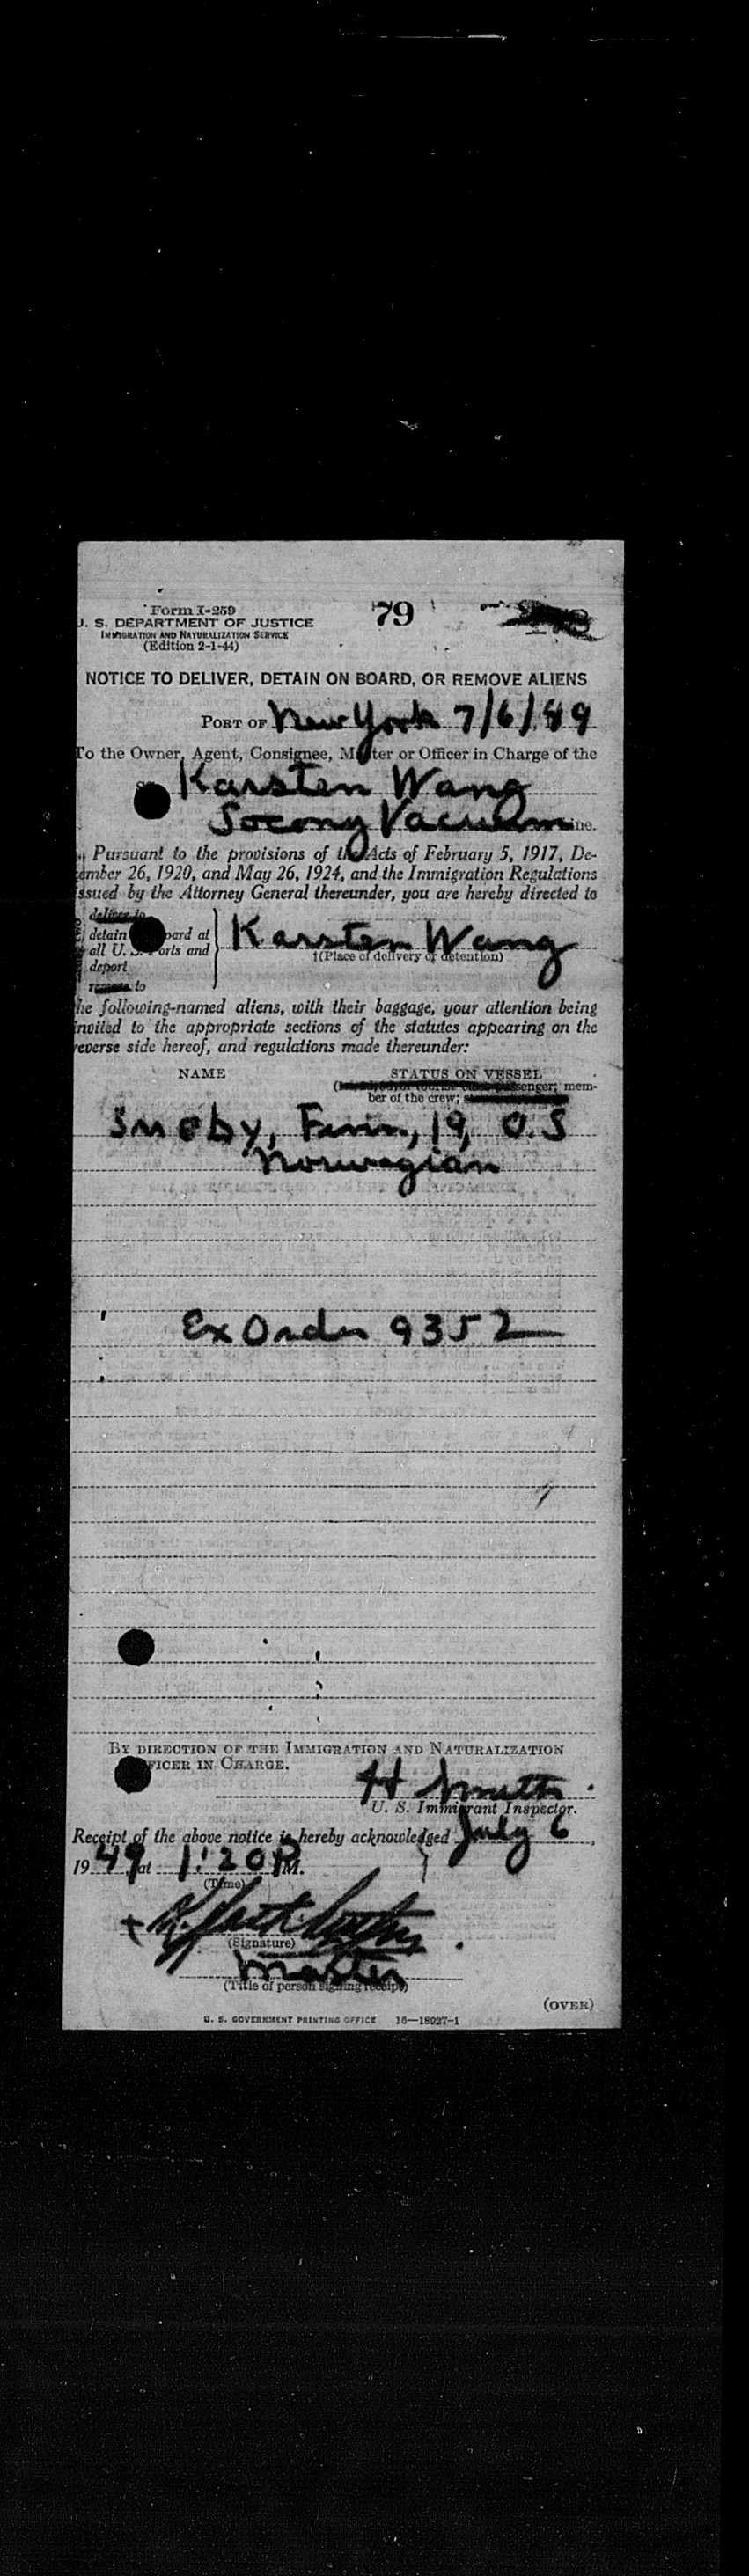 Form I-259
79
U. S. DEPARTMENT OF JUSTICE
IMMIGRATION AND NATURALIZATION SERVICE
(Edition 2-1-44)
NOTICE TO DELIVER, DETAIN ON BOARD, OR REMOVE ALIENS
PORT OF New York 7/6/49
To the Owner, Agent, Consignee, Master or Officer in Charge of the
Karsten Wang
Socony Vacuum Line.
Pursuant to the provisions of the Acts of February 5, 1917, De-
cember 26, 1920, and May 26, 1924, and the Immigration Regulations
issued by the Attorney General thereunder, you are hereby directed to
deliver to
detain board at
all U. S. Ports and
deport
Karsten Wang
†(Place of delivery or detention)
remove to
the following-named aliens, with their baggage, your attention being
invited to the appropriate sections of the statutes appearing on the
reverse side hereof, and regulations made thereunder:
NAME STATUS ON VESSEL
passenger; mem-
ber of the crew;
Sneby, Finn, 19, O.S
Norwegian
Ex Order 9352
BY DIRECTION OF THE IMMIGRATION AND NATURALIZATION
OFFICER IN CHARGE.
H Smith
U. S. Immigrant Inspector.
Receipt of the above notice is hereby acknowledged July 6,
1949, at 1:20 P M.
(Time)
(Signature)
Master
(Title of person signing receipt)
(OVER)
U. S. GOVERNMENT PRINTING OFFICE 16—18927-1